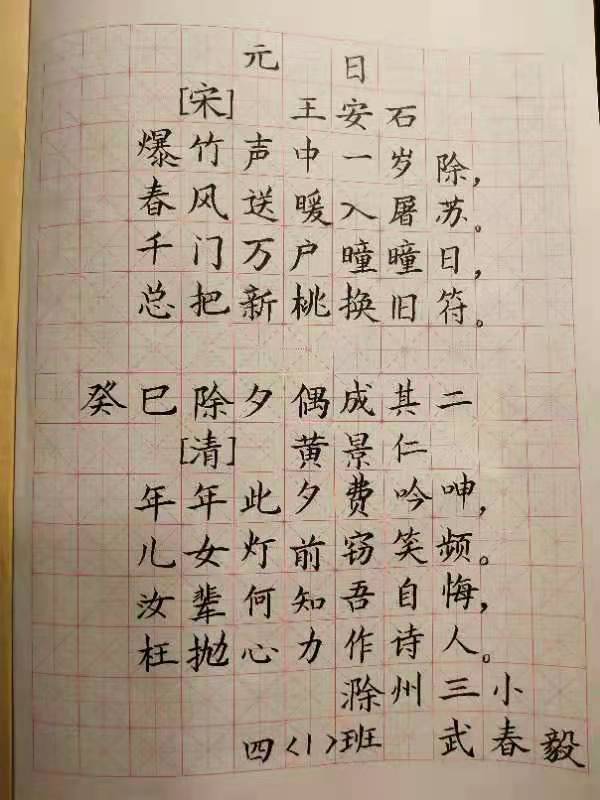 元 日
[宋] 王安石
爆竹声中一岁除，
春风送暖入屠苏。
千门万户曈曈日，
总把新桃换旧符。
癸巳除夕偶成其二
[清] 黄景仁
年年此夕费吟呻，
儿女灯前窃笑频。
汝辈何知吾自悔，
枉抛心力作诗人。
滁州三小
四〈1〉班 武春毅